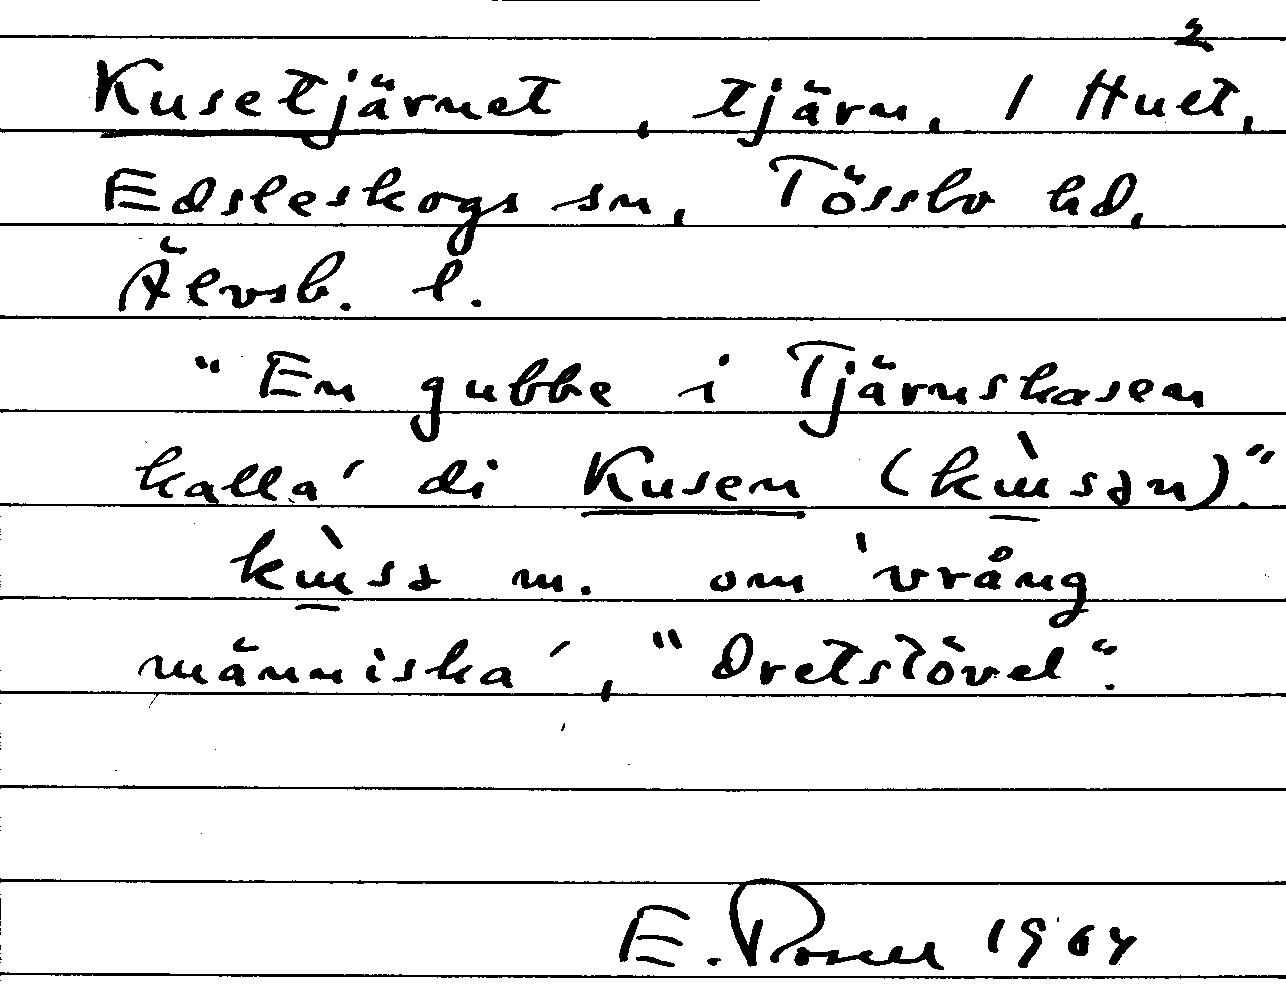 2
Kusetjärnet, tjärn, 1 Huet,
Edsleskogs sn, Tössbo hd,
Älvsb. l.
"En gubbe i Tjärnskasen
kalla' di Kusen (kùsən)."
kùsə m. om 'vrång
människa', "Dretstövel".
E. Rosell 1964